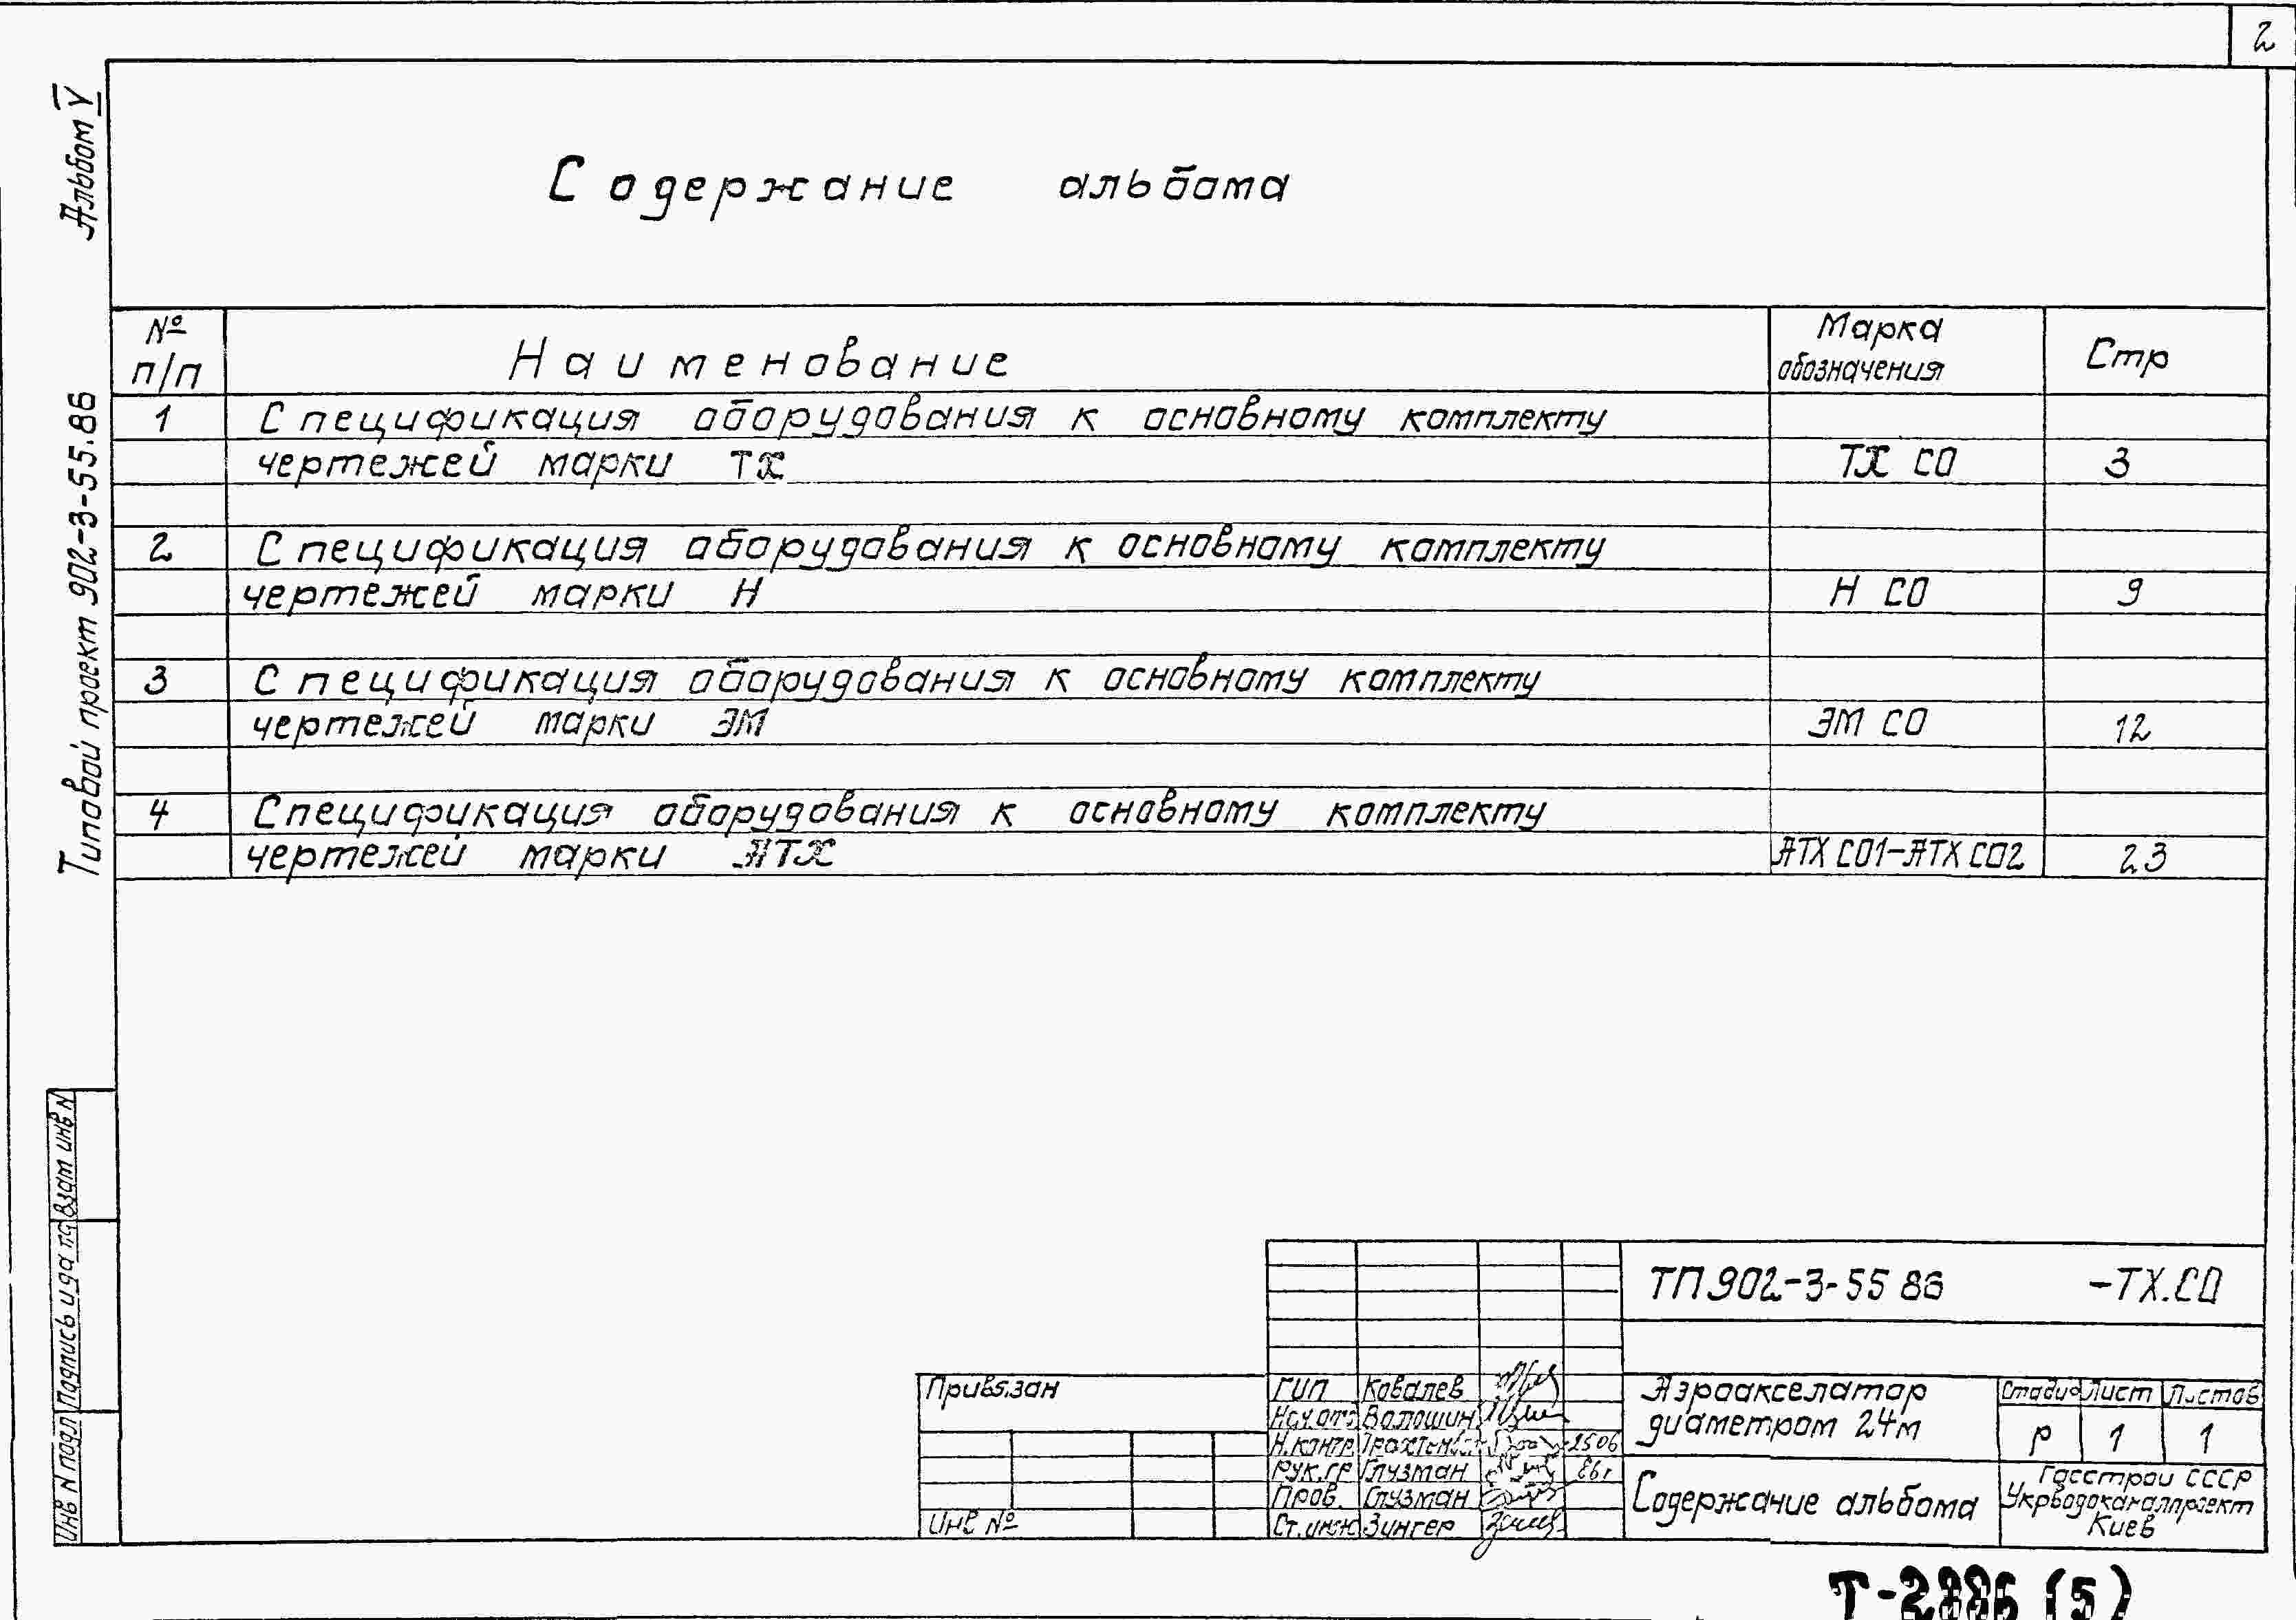 2
Альбом V
Содержание альбома
№ п/п
Наименование
Марка обозначения
Стр
1 Спецификация оборудования к основному комплекту
чертежей марки ТХ ТХ СО 3
2 Спецификация оборудования к основному комплекту
чертежей марки Н Н СО 9
3 Спецификация оборудования к основному комплекту
чертежей марки ЭМ ЭМ СО 12
4 Спецификация оборудования к основному комплекту
чертежей марки АТХ АТХ СО1-АТХ СО2 23
Типовой проект 902-3-55.86
Взам инв N
Подпись и да
Инв N подл
ТП 902-3-55 86 -ТХ.СО
Привязан
Инв №
ГИП Ковалев
Нач.отд Волошин
Н.контр. 2506
Рук.гр Глузман 86г
Пров. Глузман
Ст.инж Зингер
Аэроакселатор
диаметром 24м
Стадия Лист Листов
Р 1 1
Содержание альбома
Госстрой СССР
Укрводоканалпроект
Киев
Т-2886 (5)